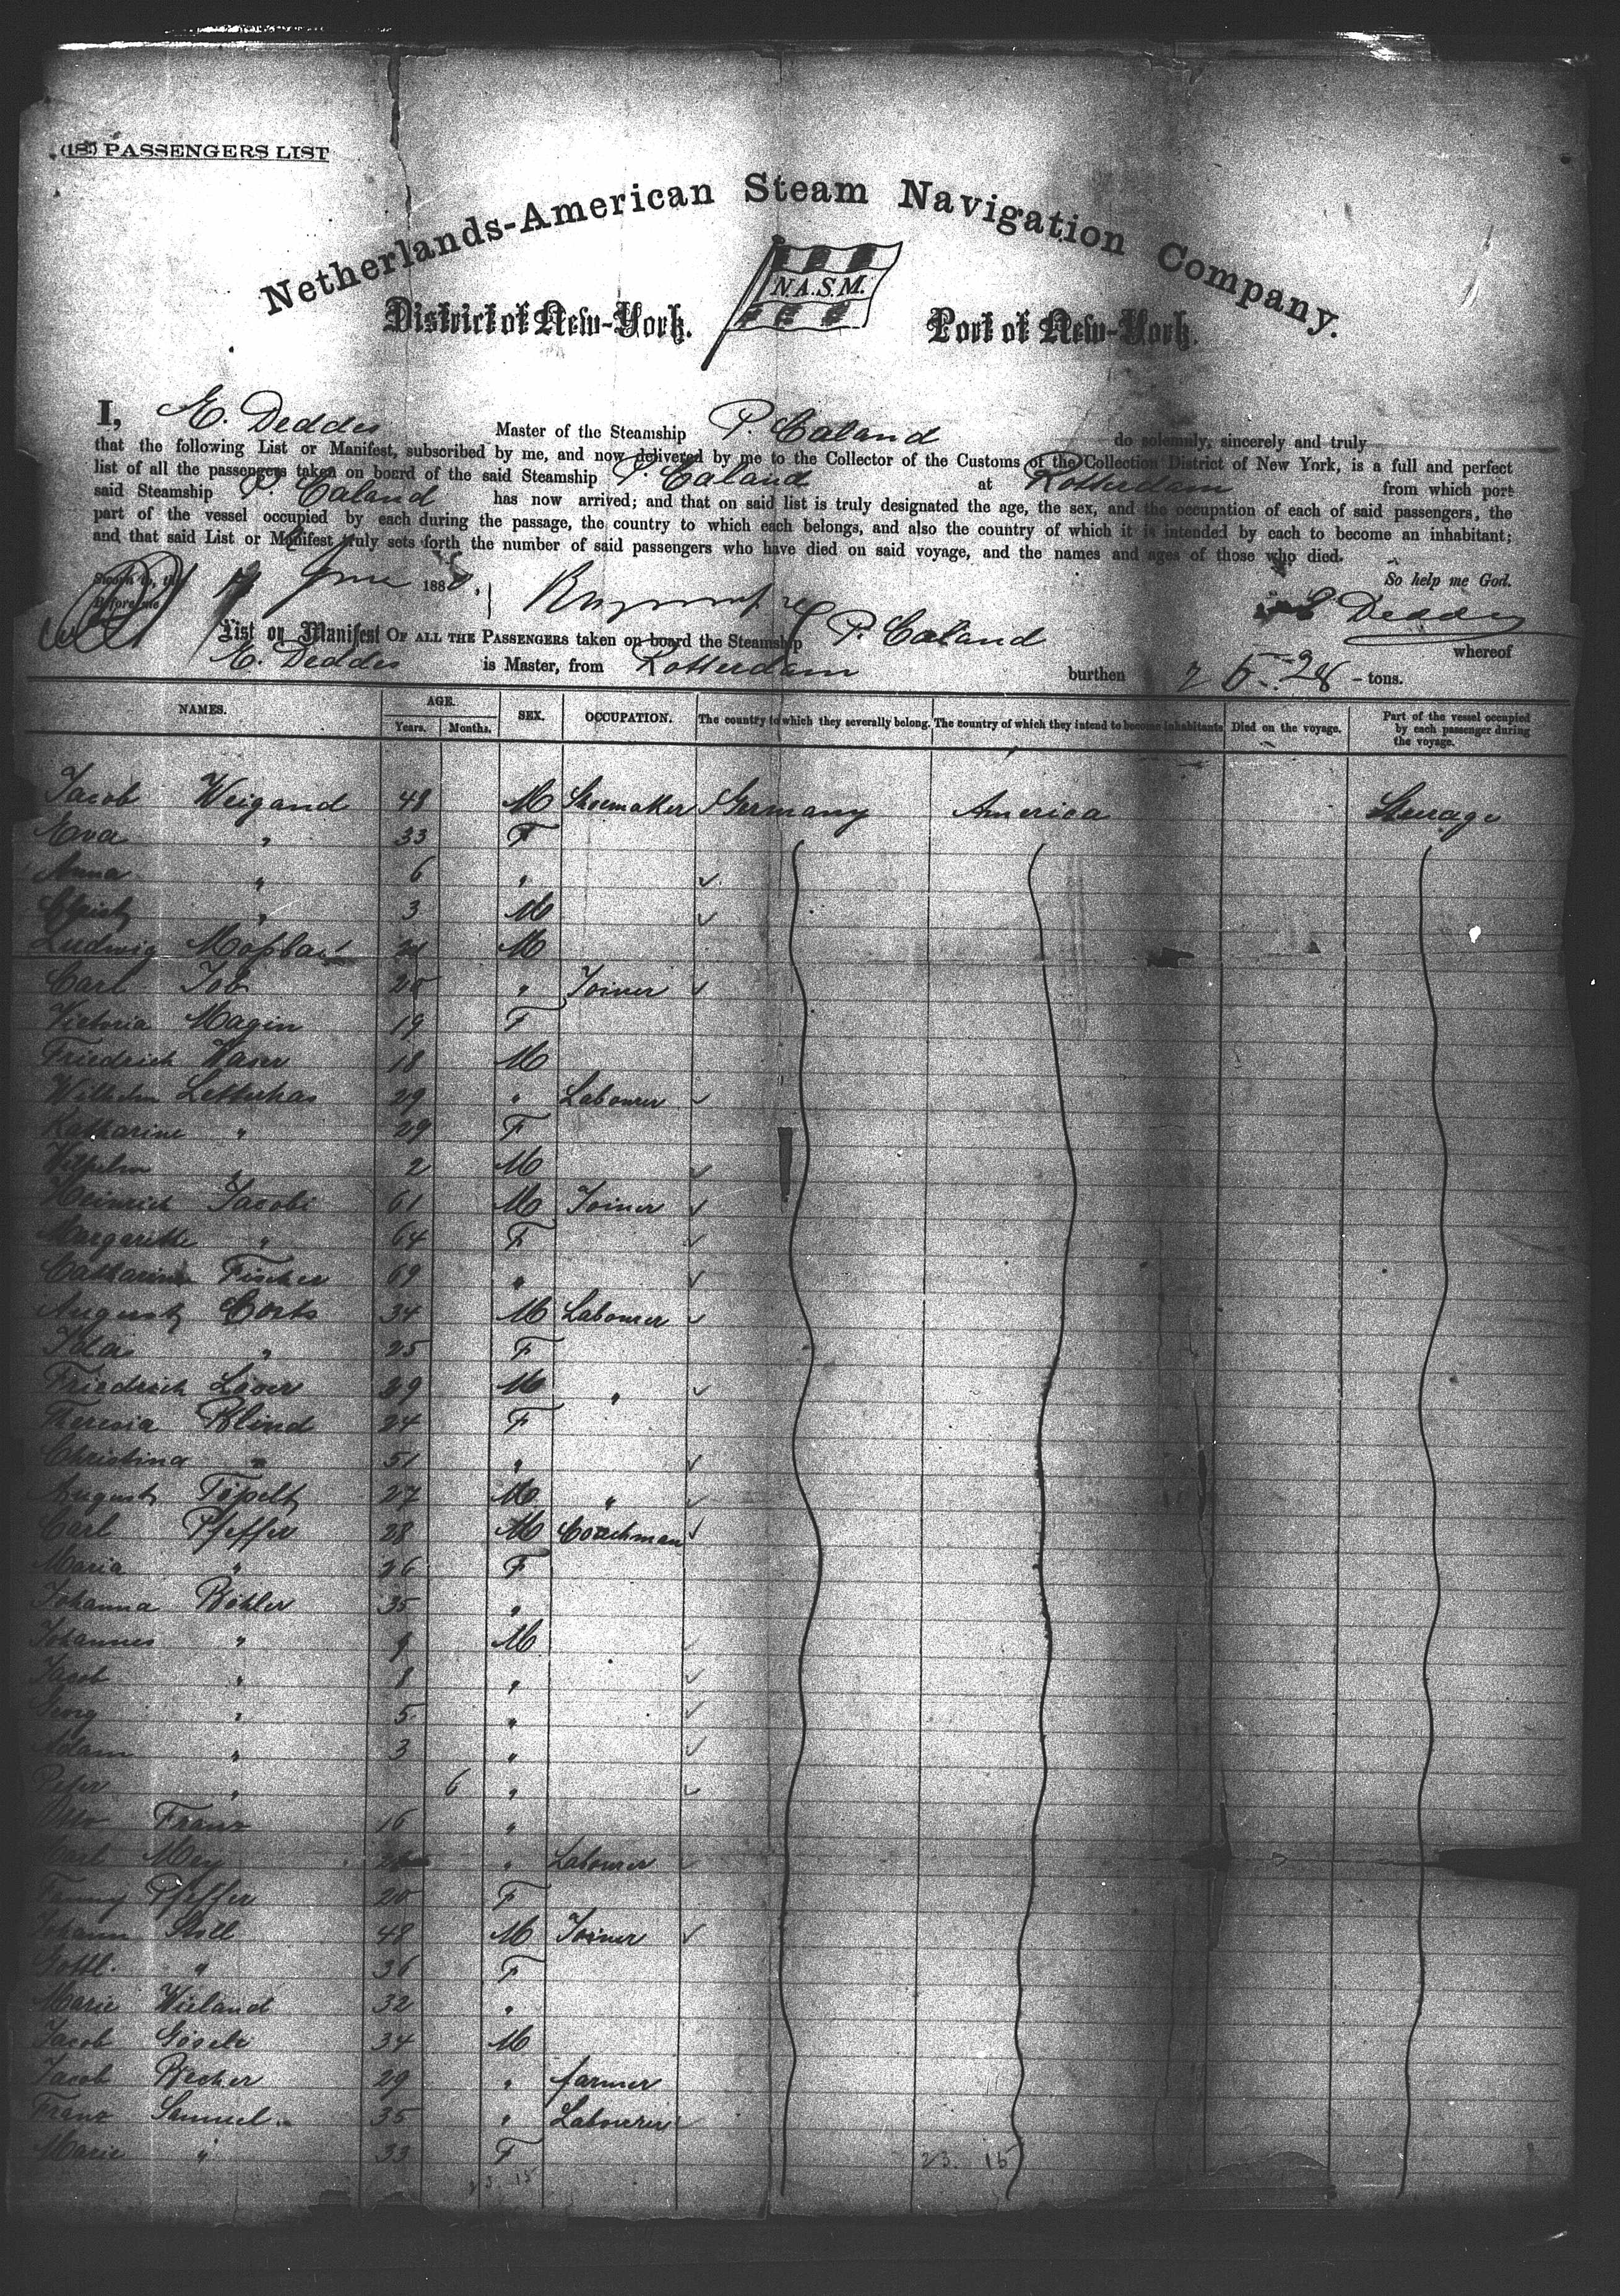 (18) PASSENGERS LIST
Netherlands-American Steam Navigation Company.
N.A.S.M.
District of New-York. Port of New-York.
I, E. Deddes Master of the Steamship P. Caland do solemnly, sincerely and truly
that the following List or Manifest, subscribed by me, and now delivered by me to the Collector of the Customs of the Collection District of New York, is a full and perfect
list of all the passengers taken on board of the said Steamship P. Caland at Rotterdam from which port
said Steamship P. Caland has now arrived; and that on said list is truly designated the age, the sex, and the occupation of each of said passengers, the
part of the vessel occupied by each during the passage, the country to which each belongs, and also the country of which it is intended by each to become an inhabitant;
and that said List or Manifest truly sets forth the number of said passengers who have died on said voyage, and the names and ages of those who died.
So help me God.
Sworn to, the June 188
Before me
E Deddes
List or Manifest OF ALL THE PASSENGERS taken on board the Steamship P. Caland whereof
E. Deddes is Master, from Rotterdam burthen - tons.
NAMES. AGE. Years. Months. SEX. OCCUPATION. The country to which they severally belong. The country of which they intend to become inhabitants Died on the voyage. Part of the vessel occupied by each passenger during the voyage.
Jacob Weigand 48 M Shoemaker Germany America Steerage
Eva " 33 F
Anna " 6 "
" 3 M
Ludwig M
Carl Job "  Joiner
Victoria Magin 19 F
Friedrich 18 M
Wilhelm Letterhas 29 " Labourer
Katharine " 29 F
Wilhelm " 2 M
Heinrich Jacobi 61 M Joiner
Margarethe " 64 F
Catharina Fischer 69 "
August 34 M Labourer
Ida " 25 F
Friedrich 29 M "
Theresia Blind 24 F
Christina " 51 "
August 27 M "
Carl Pfeffer 28 M Coachman
Maria " 26 F
Johanna Köhler 35 "
Johannes " 9 M
Jacob " 8 "
Georg " 5 "
Adam " 3 "
Peter " 6 "
Otto Franz 16 "
Carl Mey " Labourer
Fanny Pfeffer 20 F
Johann Stoll 48 M Joiner
Gottl. " 36 F
Marie Wieland 32 "
Jacob 34 M
Jacob Becher 29 " farmer
Franz Samuel 35 " Labourer
Marie " 33 F
23. 15